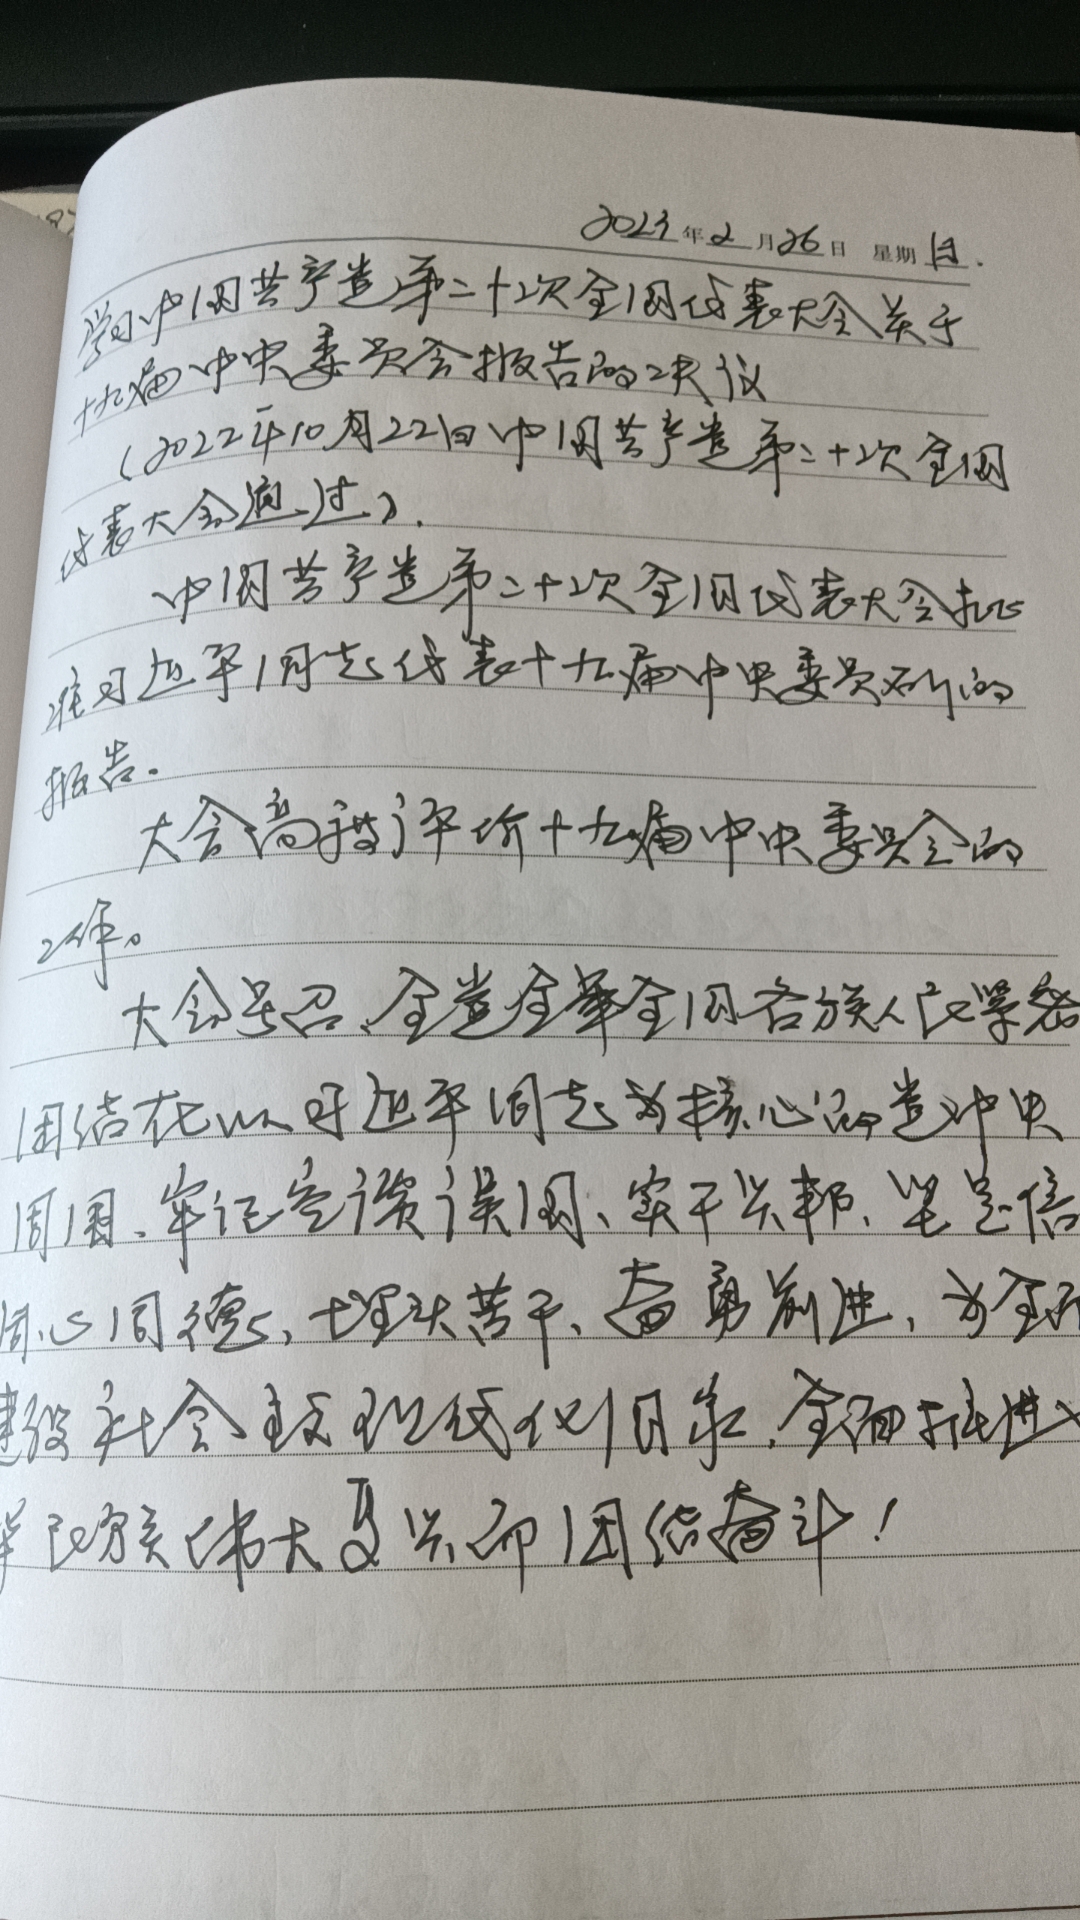 2023年2月26日 星期日.
学习中国共产党第二十次全国代表大会关于
十九届中央委员会报告的决议
(2022年10月22日中国共产党第二十次全国
代表大会通过).
中国共产党第二十次全国代表大会批
准习近平同志代表十九届中央委员所作的
报告。
大会高度评价十九届中央委员会的
工作。
大会号召、全党全军全国各族人民紧密
团结在以习近平同志为核心的党中央
周围、牢记空谈误国、实干兴邦、坚定信
同心同德、埋头苦干、奋勇前进、为全面
建设社会主义现代化国家、全面推进
华民族伟大复兴而团结奋斗！